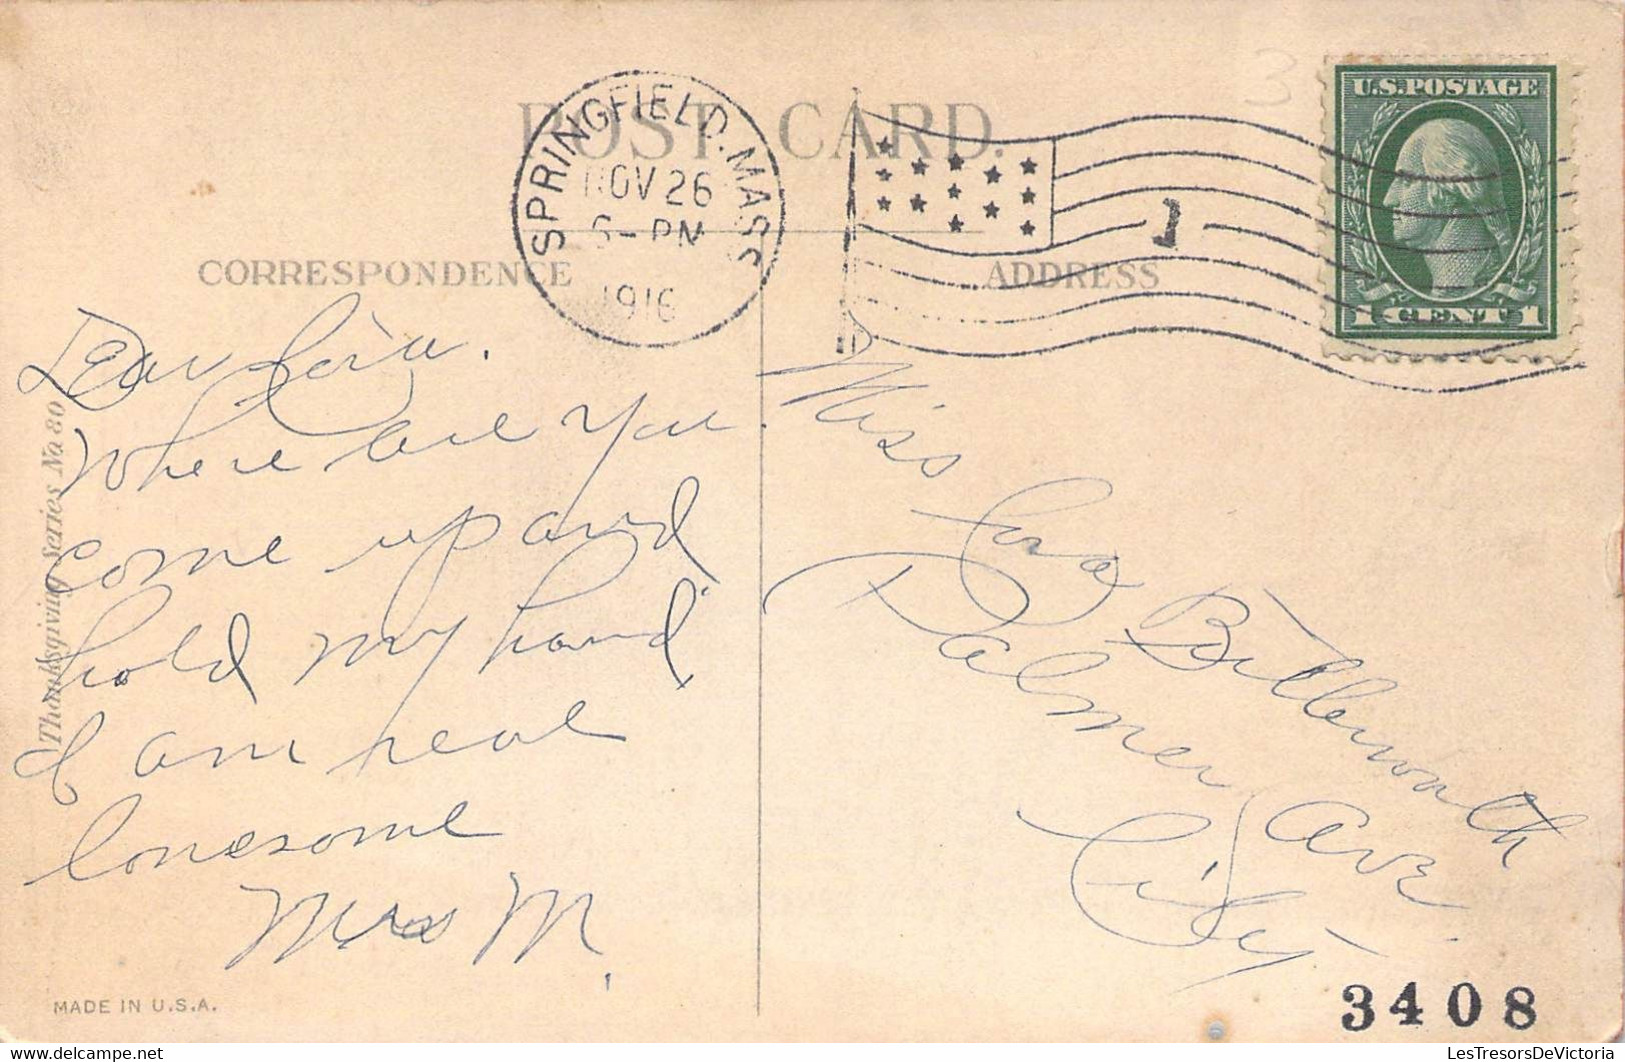 POST CARD.
SPRINGFIELD. MASS.
NOV 26
6-PM
1916
1
U.S.POSTAGE
1 CENT 1
CORRESPONDENCE
ADDRESS
Dear Cora.
Where are you.
come up and
hold my hand
I am real
lonesome
Mrs M.
Miss Cora Butterworth
Palmer Ave.
City
Thanksgiving Series No 80
MADE IN U.S.A.
3408
LesTresorsDeVictoria